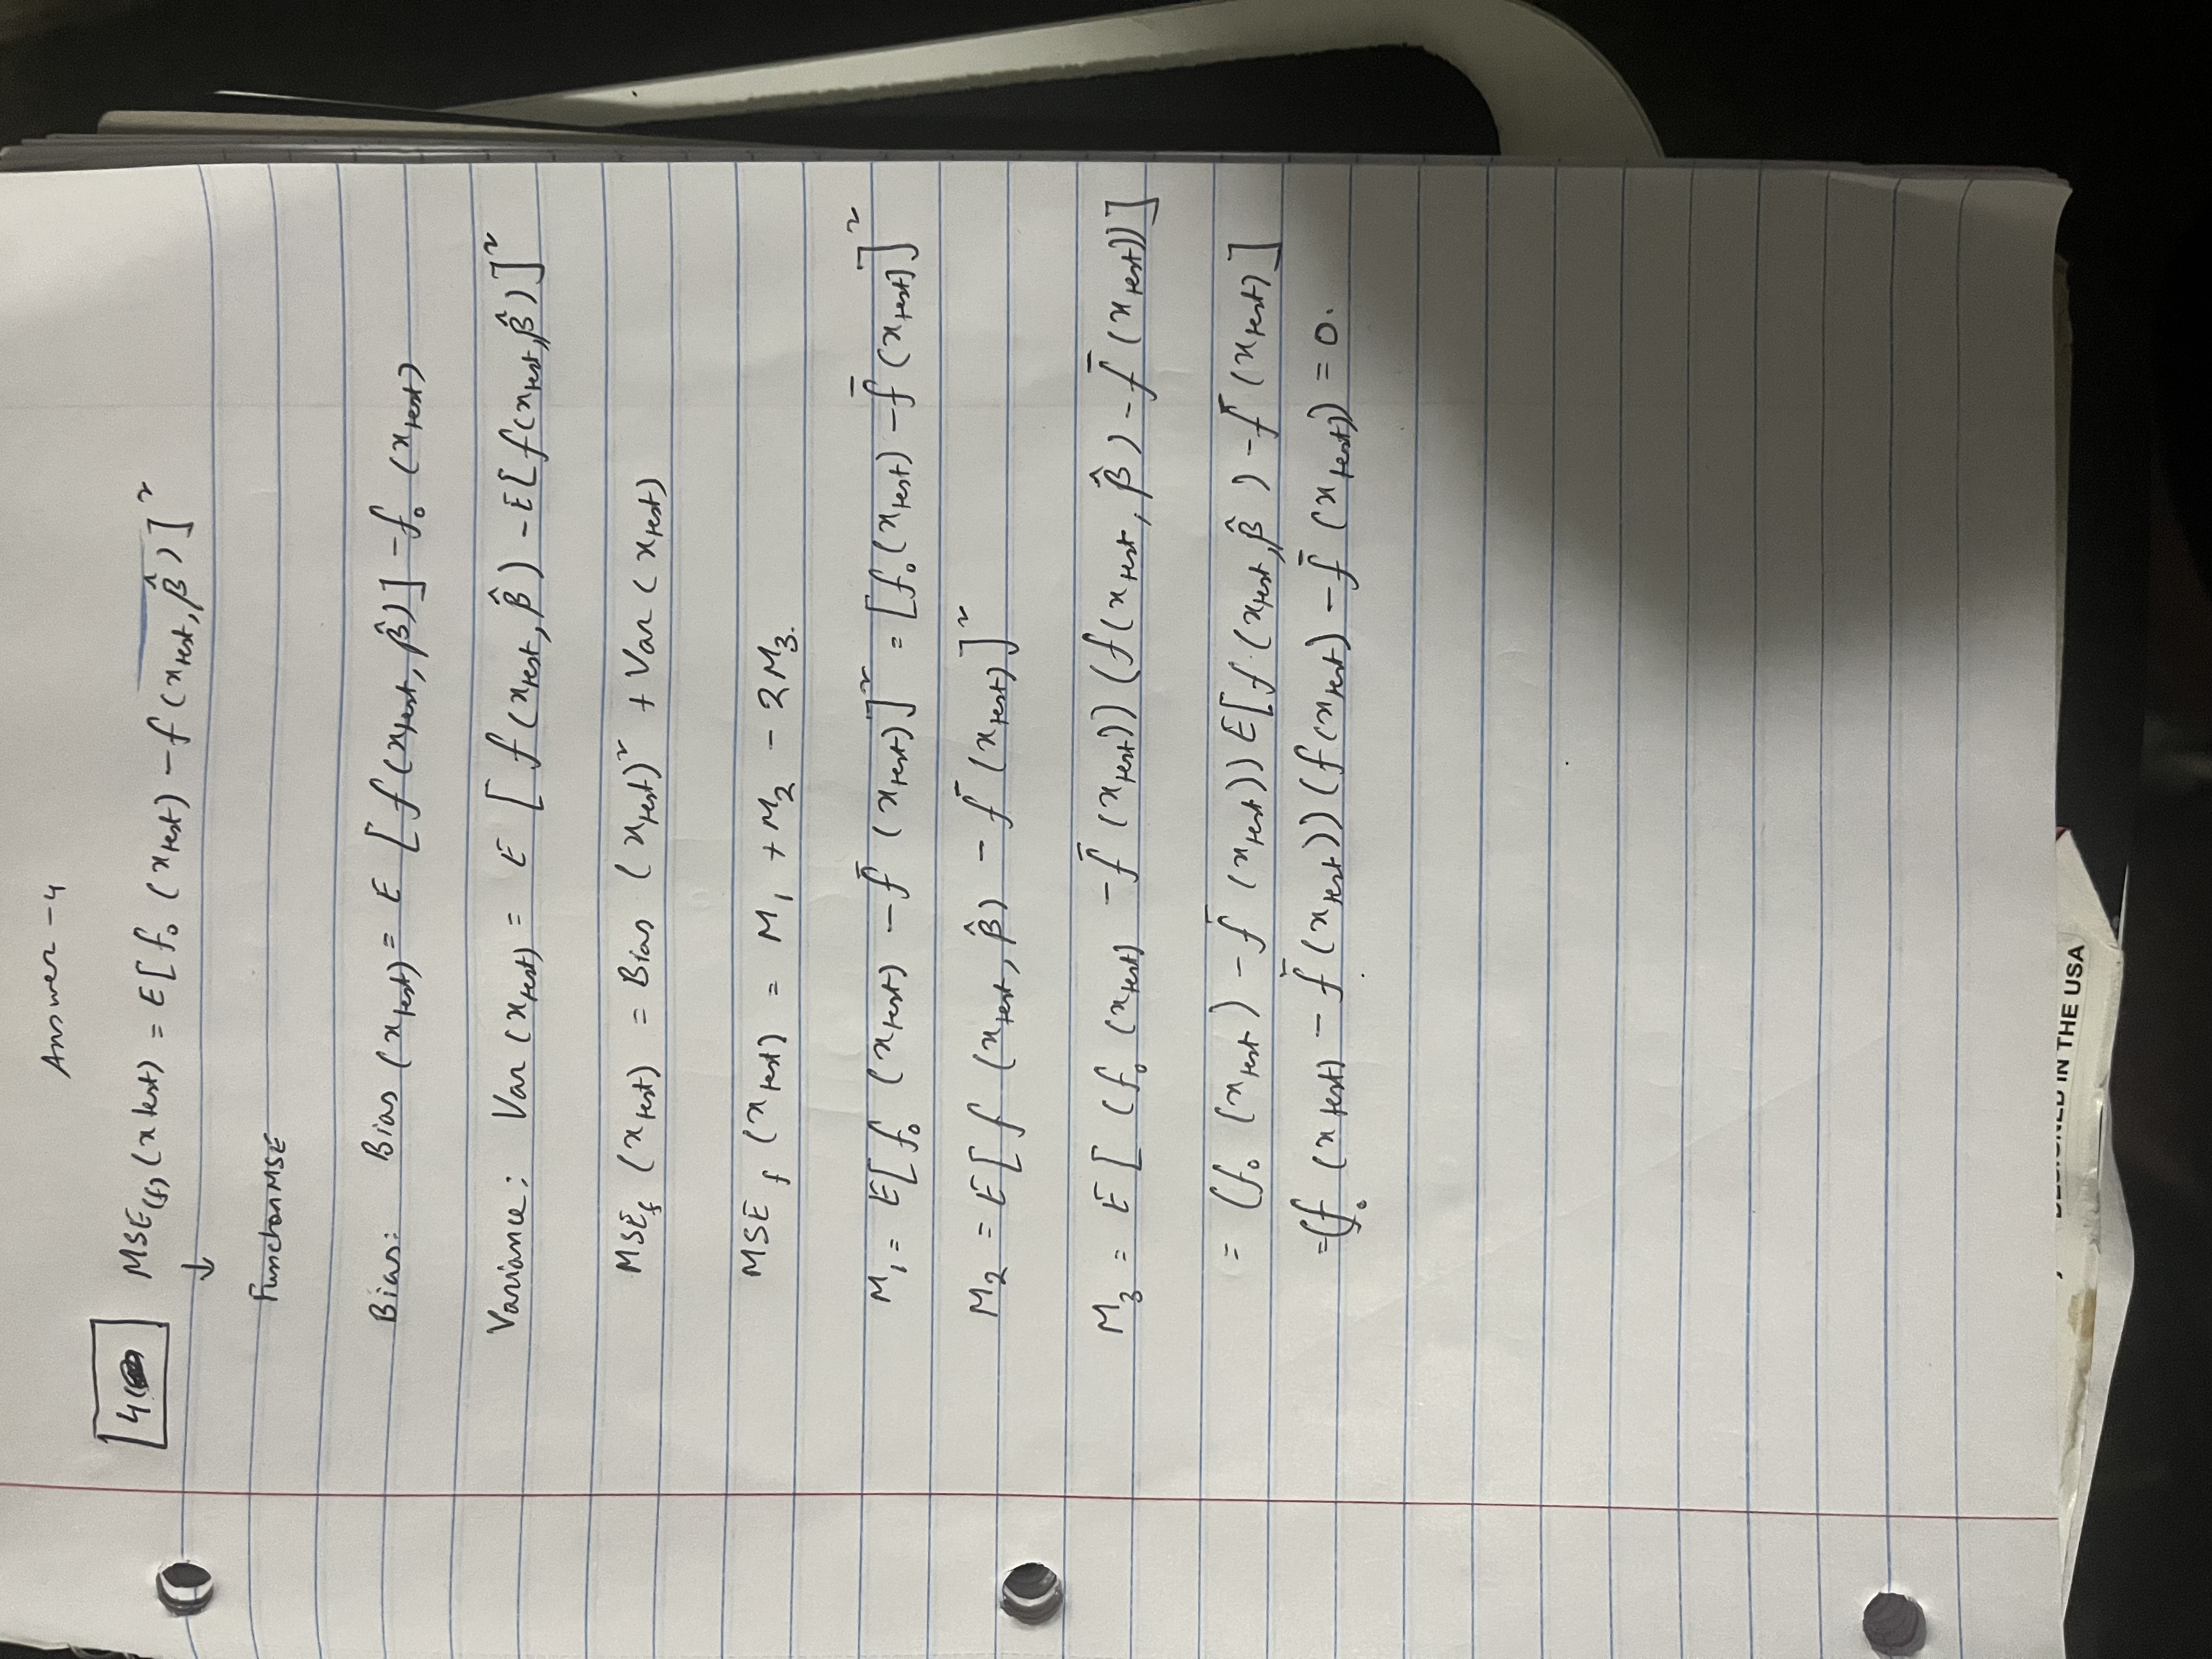 Answer - 4
4 MSE(f) (x test) = E[f₀ (xtest) - f (xtest, β̂)]²
↓
Function MSE
Bias: Bias (xtest) = E [f (xtest, β̂)] - f₀ (xtest)
Variance: Var (xtest) = E [f (xtest, β̂) - E[f(xtest, β̂)]²
MSEf (xtest) = Bias (xtest)² + Var (xtest)
MSEf (xtest) = M₁ + M₂ - 2M₃.
M₁ = E[f₀ (xtest) - f̄ (xtest)]² = [f₀(xtest) - f̄ (xtest]²
M₂ = E[f (xtest, β̂) - f̄ (xtest)]²
M₃ = E[ (f₀ (xtest) - f̄ (xtest)) (f(xtest, β̂) - f̄ (xtest))]
= (f₀ (xtest) - f̄ (xtest)) E[f (xtest, β̂) - f̄ (xtest)]
= (f₀ (xtest) - f̄ (xtest)) (f(xtest) - f̄ (xtest)) = 0.
DESIGNED IN THE USA